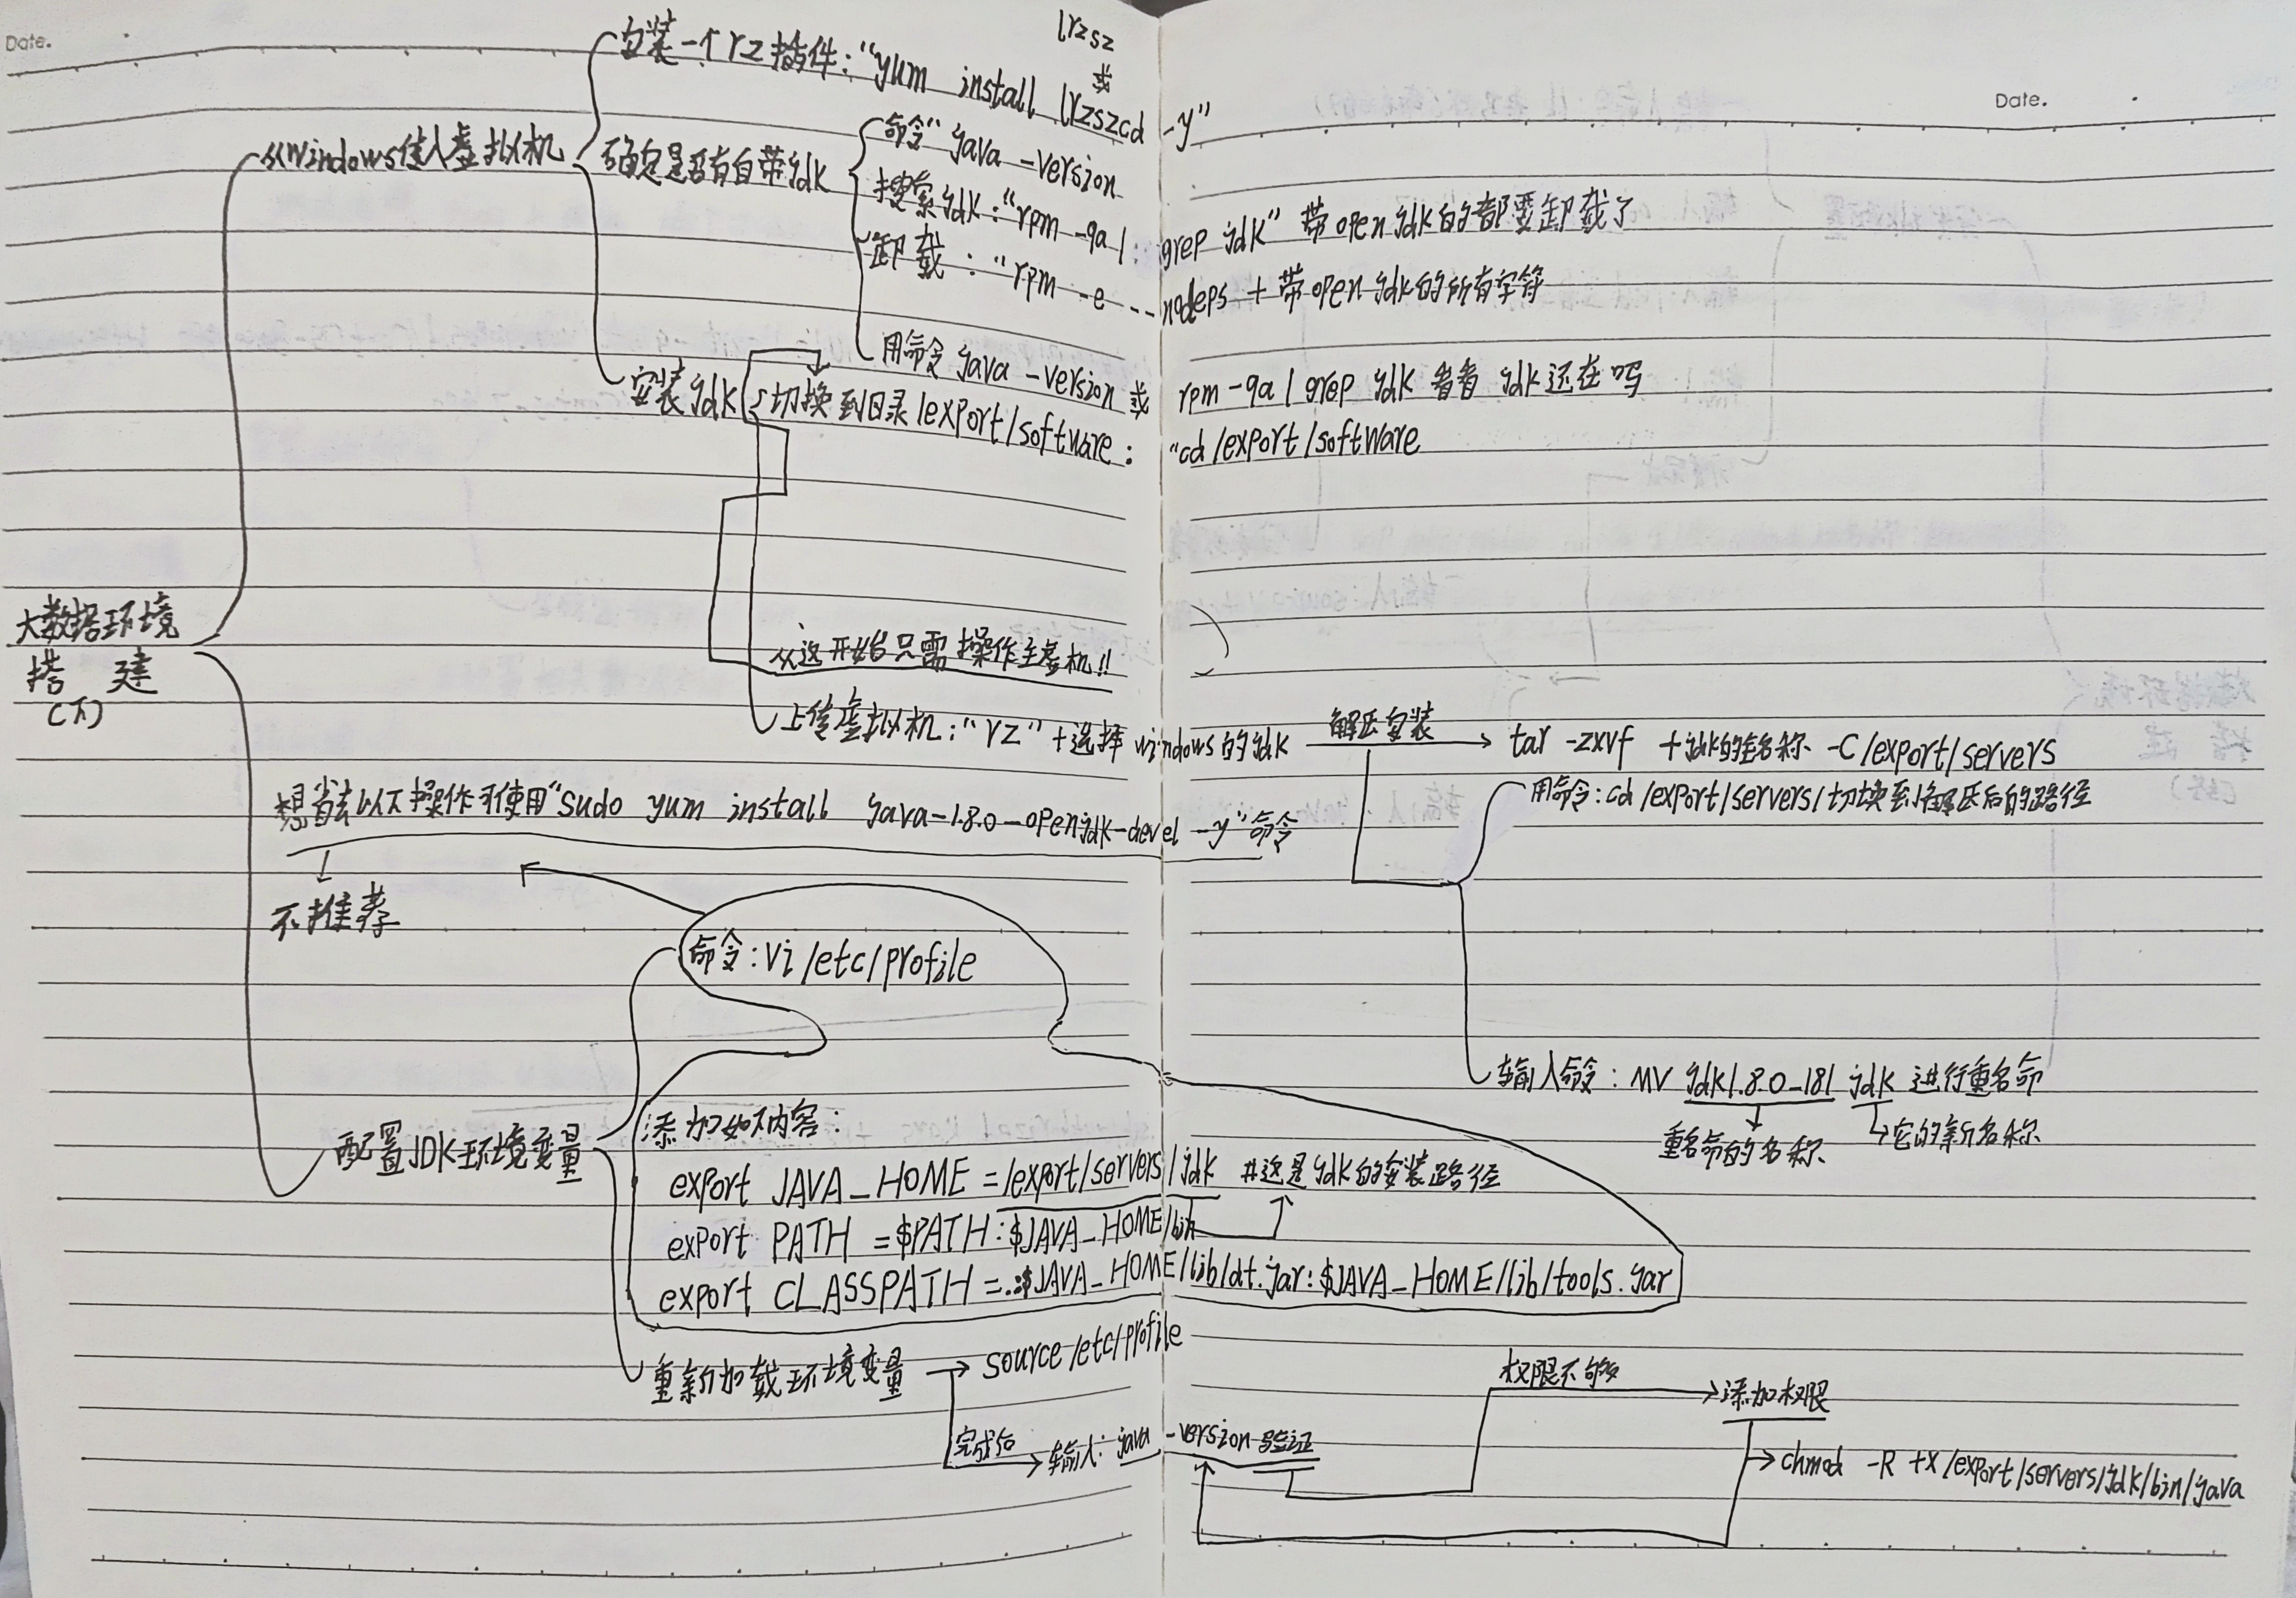 Date.
Date.
大数据环境
搭建
(下)
从windows传入虚拟机
安装一个rz插件:"yum install lrzszcd -y"
lrzsz
或
确定是否有自带jdk
命令"java -version
搜索jdk:"rpm -qa |: grep jdk" 带open jdk的都要卸载了
卸载:"rpm -e --nodeps + 带open jdk的所有字符
用命令java -version 或 rpm -qa | grep jdk 看看 jdk还在吗
安装jdk
切换到目录/export/software: "cd /export/software
从这开始只需操作主虚机!!
上传虚拟机:"rz"+选择windows的jdk
解压安装
tar -zxvf +jdk的全名称 -C /export/servers
用命令:cd /export/servers/切换到解压后的路径
输入命令: mv jdk1.8.0_181 jdk 进行重名命
重名命的名称
它的新名称
想省去以下操作可使用"sudo yum install java-1.8.0-openjdk-devel -y"命令
不推荐
配置JDK环境变量
命令:vi /etc/profile
添加如下内容:
export JAVA_HOME =/export/servers/jdk #这是jdk的安装路径
export PATH =$PATH:$JAVA_HOME/bin
export CLASSPATH =.:$JAVA_HOME/lib/dt.jar:$JAVA_HOME/lib/tools.jar
重新加载环境变量
source /etc/profile
完成后
输入: java -version 验证
权限不够
添加权限
chmod -R +x /export/servers/jdk/bin/java